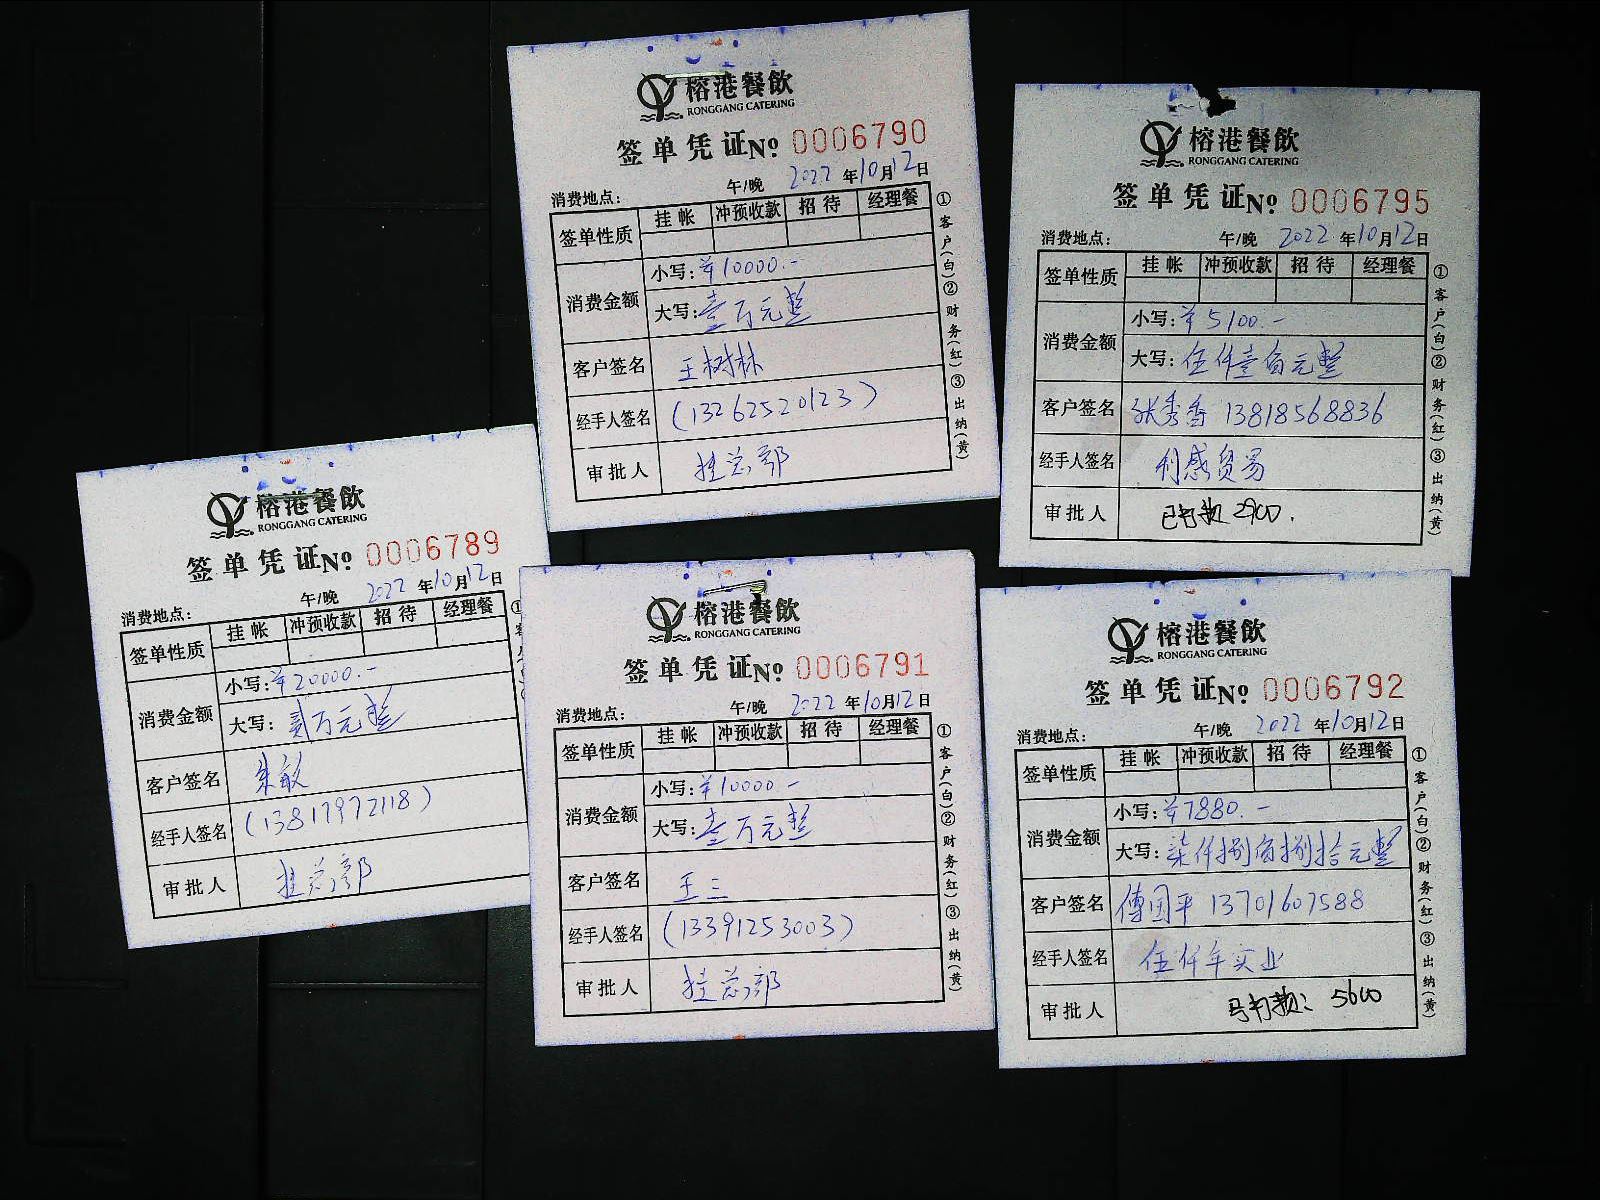 榕港餐飲
RONGGANG CATERING
签单凭证№ 0006790
午/晚 2022年10月12日
消费地点:
签单性质 挂帐 冲预收款 招待 经理餐
消费金额 小写: ¥10000.-
大写: 壹万元整
客户签名 王树林
经手人签名 (13262520123)
审批人 挂总部
①客户(白)②财务(红)③出纳(黄)
榕港餐飲
RONGGANG CATERING
签单凭证№ 0006795
消费地点: 午/晚 2022年10月12日
签单性质 挂帐 冲预收款 招待 经理餐
消费金额 小写: ¥5100.-
大写: 伍仟壹佰元整
客户签名 张秀香 13818568836
经手人签名 利感贸易
审批人 已打款2900.
①客户(白)②财务(红)③出纳(黄)
榕港餐飲
RONGGANG CATERING
签单凭证№ 0006789
午/晚 2022年10月12日
消费地点:
签单性质 挂帐 冲预收款 招待 经理餐
消费金额 小写: ¥20000.-
大写: 贰万元整
客户签名 朱敏
经手人签名 (13817972118)
审批人 挂总部
①客
榕港餐飲
RONGGANG CATERING
签单凭证№ 0006791
消费地点: 午/晚 2022年10月12日
签单性质 挂帐 冲预收款 招待 经理餐
消费金额 小写: ¥10000-
大写: 壹万元整
客户签名 王三
经手人签名 (13391253003)
审批人 挂总部
①客户(白)②财务(红)③出纳(黄)
榕港餐飲
RONGGANG CATERING
签单凭证№ 0006792
消费地点: 午/晚 2022年10月12日
签单性质 挂帐 冲预收款 招待 经理餐
消费金额 小写: ¥7880.-
大写: 柒仟捌佰捌拾元整
客户签名 傅国平 13701607588
经手人签名 伍仟年实业
审批人 已打款: 5600
①客户(白)②财务(红)③出纳(黄)